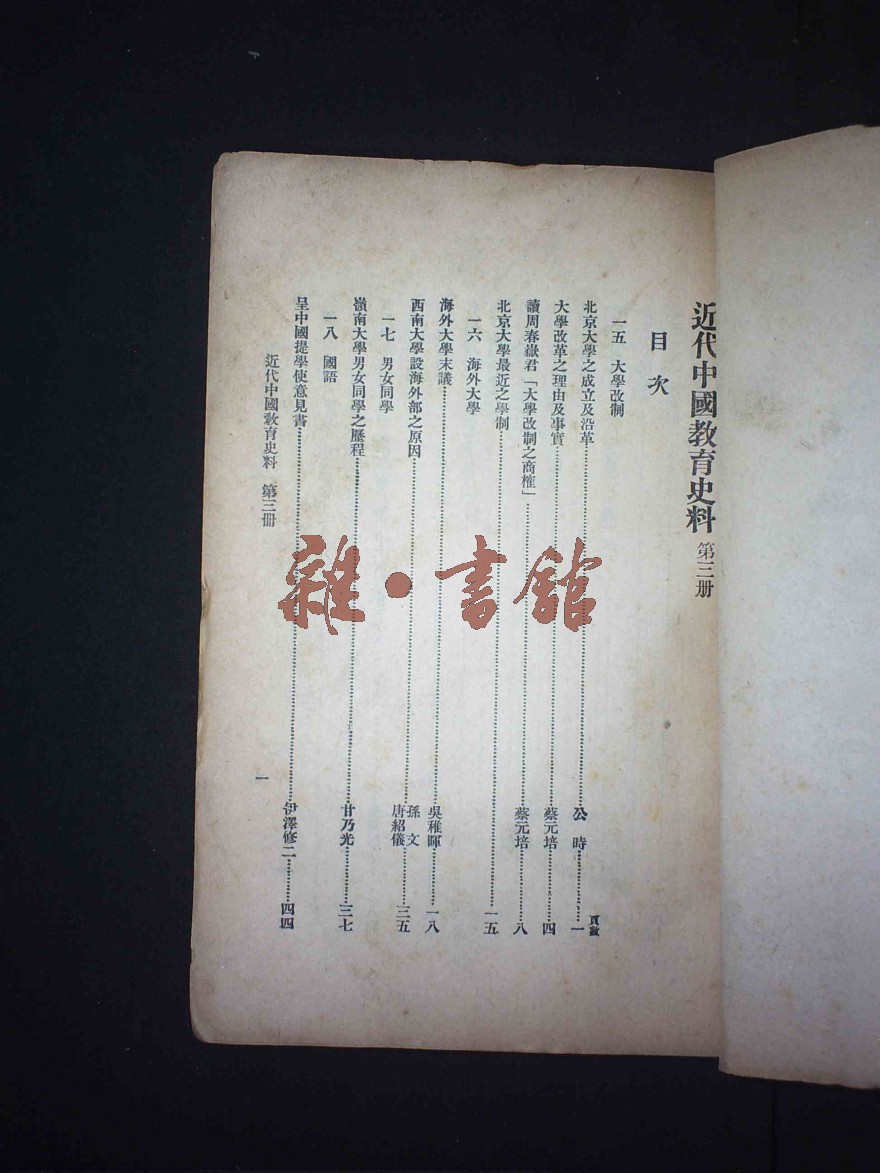 近代中國教育史料 第三册
目次
頁數
一五 大學改制
北京大學之成立及沿革 公時 一
大學改革之理由及事實 蔡元培 四
讀周春嶽君「大學改制之商榷」 蔡元培 八
北京大學最近之學制 一五
一六 海外大學
海外大學末議 吳稚暉 一八
西南大學設海外部之原因 孫文 唐紹儀 三五
一七 男女同學
嶺南大學男女同學之歷程 甘乃光 三七
一八 國語
呈中國提學使意見書 伊澤修二 四四
近代中國教育史料 第三册
一
雜·書館